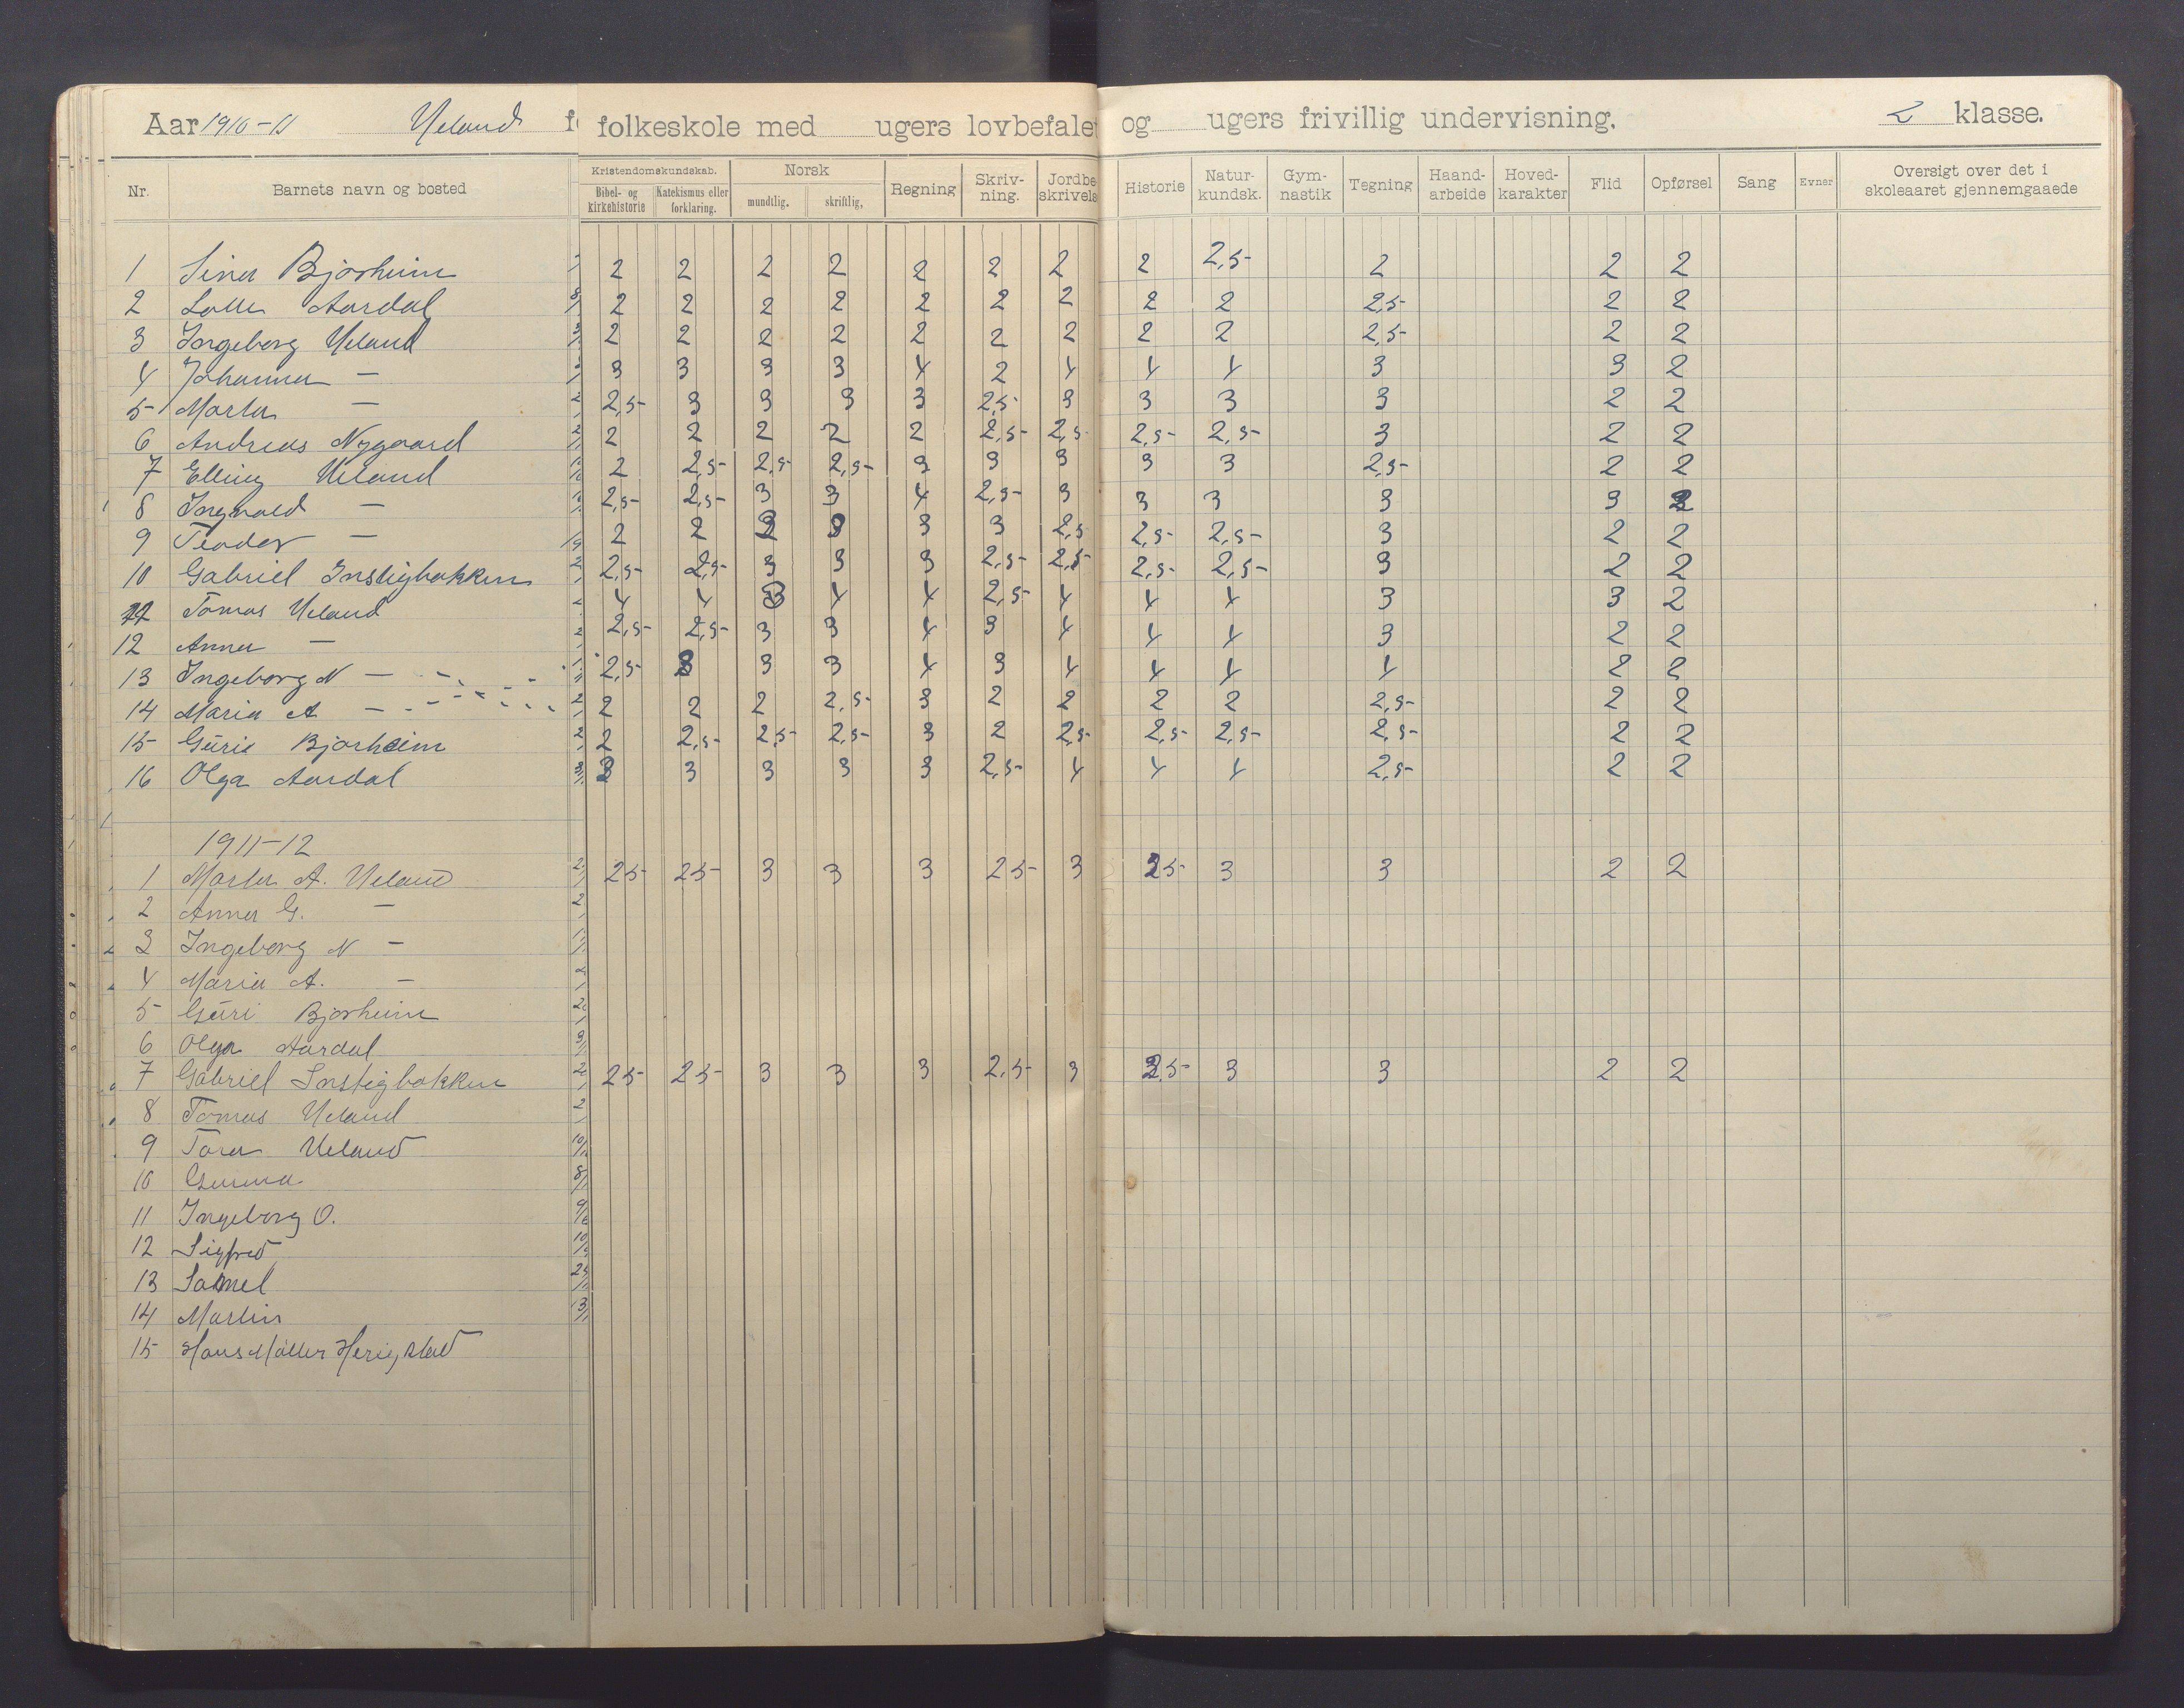 Aar 1910-11 Ueland folkeskole med ugers lovbefalet og ugers frivillig undervisning. 2 klasse.
Nr. Barnets navn og bosted Kristendomskundskab. Bibel- og kirkehistorie Katekismus eller forklaring. Norsk mundtlig. skriftlig, Regning Skriv-ning. Jordbe skrivels Historie Natur-kundsk. Gym-nastik Tegning Haand-arbeide Hoved-karakter Flid Opførsel Sang Evner Oversigt over det i skoleaaret gjennemgaaede
1 Sina Bjorheim 2 2 2 2 2 2 2 2 2,5 2 2 2
2 Lalla Aardal 2 2 2 2 2 2 2 2 2 2,5 2 2
3 Ingeborg Ueland 2 2 2 2 2 2 2 2 2 2,5 2 2
4 Johanna — 3 3 3 3 4 2 4 4 4 3 3 2
5 Marta — 2,5 3 3 3 3 2,5 3 3 3 3 2 2
6 Andreas Nygaard 2 2 2 2 2 2,5 2,5 2,5 2,5 3 2 2
7 Elling Ueland 2 2,5 2,5 2,5 3 3 3 3 3 2,5 2 2
8 Ingvald — 2,5 2,5 3 3 4 2,5 3 3 3 3 3 2
9 Teodor — 2 2 2 3 3 3 2,5 2,5 2,5 3 2 2
10 Gabriel Instigbakken 2,5 2,5 3 3 3 2,5 2,5 2,5 2,5 3 2 2
11 Tomas Ueland 4 4 3 4 4 2,5 4 4 4 3 3 2
12 Anna — 2,5 2,5 3 3 4 3 4 4 4 3 2 2
13 Ingeborg N — 2,5 3 3 3 4 3 4 4 4 4 2 2
14 Maria A — 2 2 2 2,5 3 2 2 2 2 2,5 2 2
15 Guri Bjorheim 2 2,5 2,5 2,5 3 2 2,5 2,5 2,5 2,5 2 2
16 Olga Aardal 3 3 3 3 3 2,5 4 4 4 2,5 2 2
1911-12
1 Marta A. Ueland 25 25 3 3 3 25 3 25 3 3 2 2
2 Anna G. —
3 Ingeborg N —
4 Maria A. —
5 Guri Bjorheim
6 Olga Aardal
7 Gabriel Instigbakken 25 25 3 3 3 2,5 3 2,5 3 3 2 2
8 Tomas Ueland
9 Tora Ueland
10 Gunna
11 Ingeborg O.
12 Sigfred
13 Samel
14 Martin
15 Hans Møller Herigstad